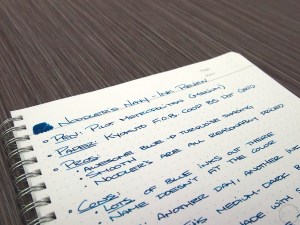 NOODLER'S NAVY - INK REVIEW
• PEN: PILOT METROPOLITAN (MEDIUM)
• PAPER: KYOKUTO F.O.B. COOP B5 DOT GRID
• PROS:
• AWESOME BLUE & TURQUOISE SHADING
• SMOOTH
• NOODLER'S ARE ALL REASONABLY PRICED
• CONS:
• LOTS OF BLUE INKS OUT THERE
• NAME DOESN'T THE COLOR
ANOTHER DAY, ANOTHER INK
THIS MEDIUM-DARK B
MADE WITH